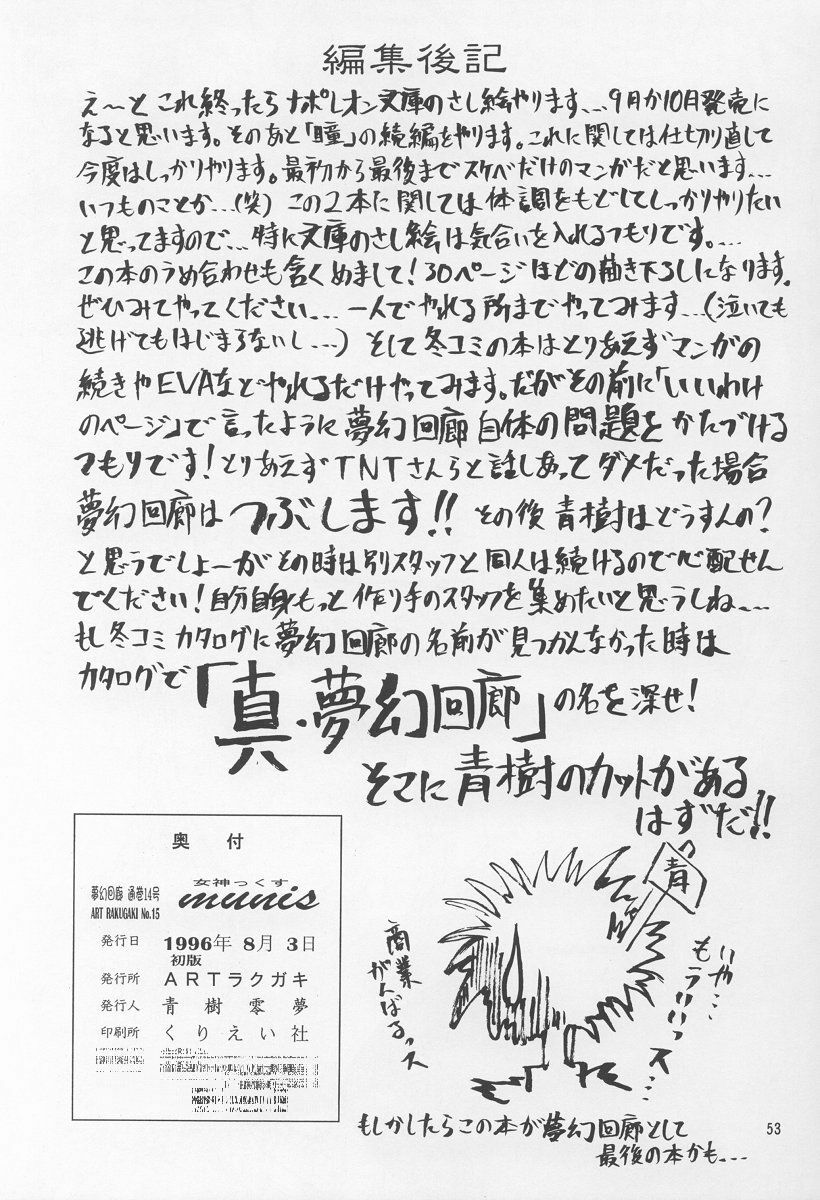 編集後記
え～と これ終ったら ナポレオン文庫のさし絵やります...9月か10月発売に
なると思います。そのあと「瞳」の続編をやります。これに関しては仕切り直して
今度はしっかりやります。最初から最後までスケベだけのマンガだと思います...
いつものことか...(笑) この2本に関しては体調をもどしてしっかりやりたい
と思ってますので...特に文庫のさし絵は気合いを入れるつもりです。...
この本のうめ合わせも含くめまして!30ページほどの描き下ろしになります。
ぜひみてやってください... 一人でやれる所までやってみます...(泣いても
逃げてもはじまらないし...) そして冬コミの本はとりあえずマンガの
続きやEVAなどやれるだけやってみます。だがその前に「いいわけ
のページ」で言ったように夢幻回廊自体の問題をかたづける
つもりです!とりあえずTNTさんらと話しあってダメだった場合
夢幻回廊は つぶします!! その後青樹はどうすんの?
と思うでしょーがその時は別スタッフと同人は続けるので心配せん
でください!自分自身もっと作り手のスタッフを集めたいと思うしね...
もし冬コミカタログに夢幻回廊の名前が見つかんなかった時は
カタログで「真・夢幻回廊」の名を深せ!
そこに青樹のカットがある
はずだ!!
奥付
女神っくす
夢幻回廊 通巻14号
munis
ART RAKUGAKI No.15
発行日 1996年 8月 3日
初版
発行所 ARTラクガキ
発行人 青樹零夢
印刷所 くりえい社
青
商業
がんばるっス
いや...
もういいっス...
もしかしたらこの本が夢幻回廊として
最後の本かも...
53